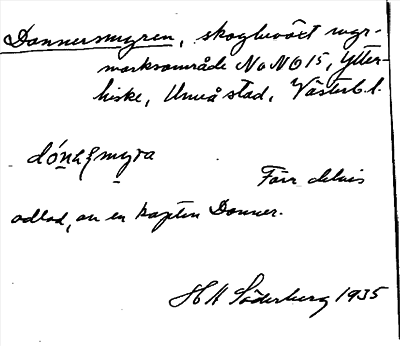 Donnersmyren, skogbevöxt myr-
marksområde No NO 15, Ytter-
hiske, Umeå stad, Västerb. l.
Förr delvis
odlad, av en kapten Donner.
H Söderberg 1935